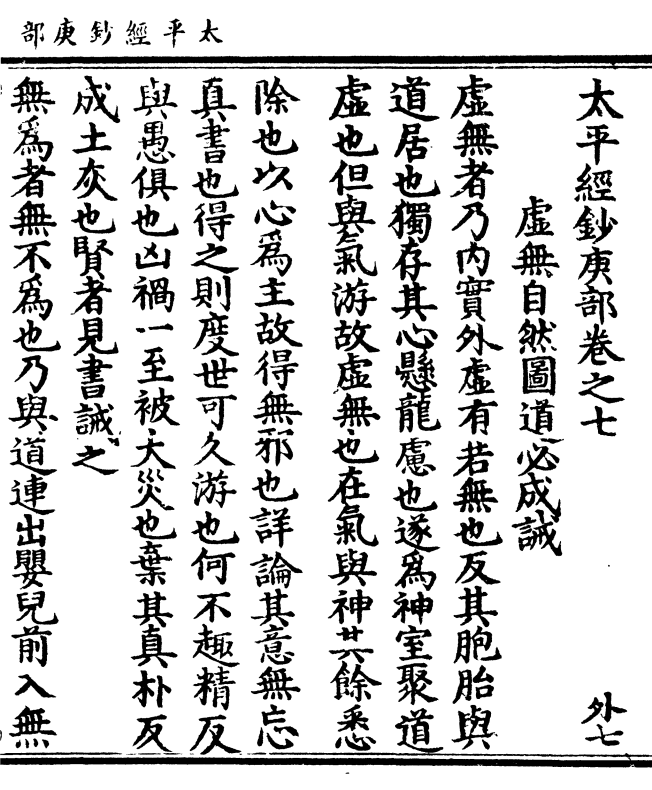 太平經鈔庚部
太平經鈔庚部卷之七
外七
虛無自然圖道必成誡
虛無者乃內實外虛有若無也反其胞胎與
道居也獨存其心懸龍慮也遂爲神室聚道
虛也但與氣游故虛無也在氣與神其餘悉
除也以心爲主故得無邪也詳論其意無忘
真書也得之則度世可久游也何不趣精反
與愚俱也凶禍一至被大災也棄其真朴反
成土灰也賢者見書誡之
無爲者無不爲也乃與道連出嬰兒前入無